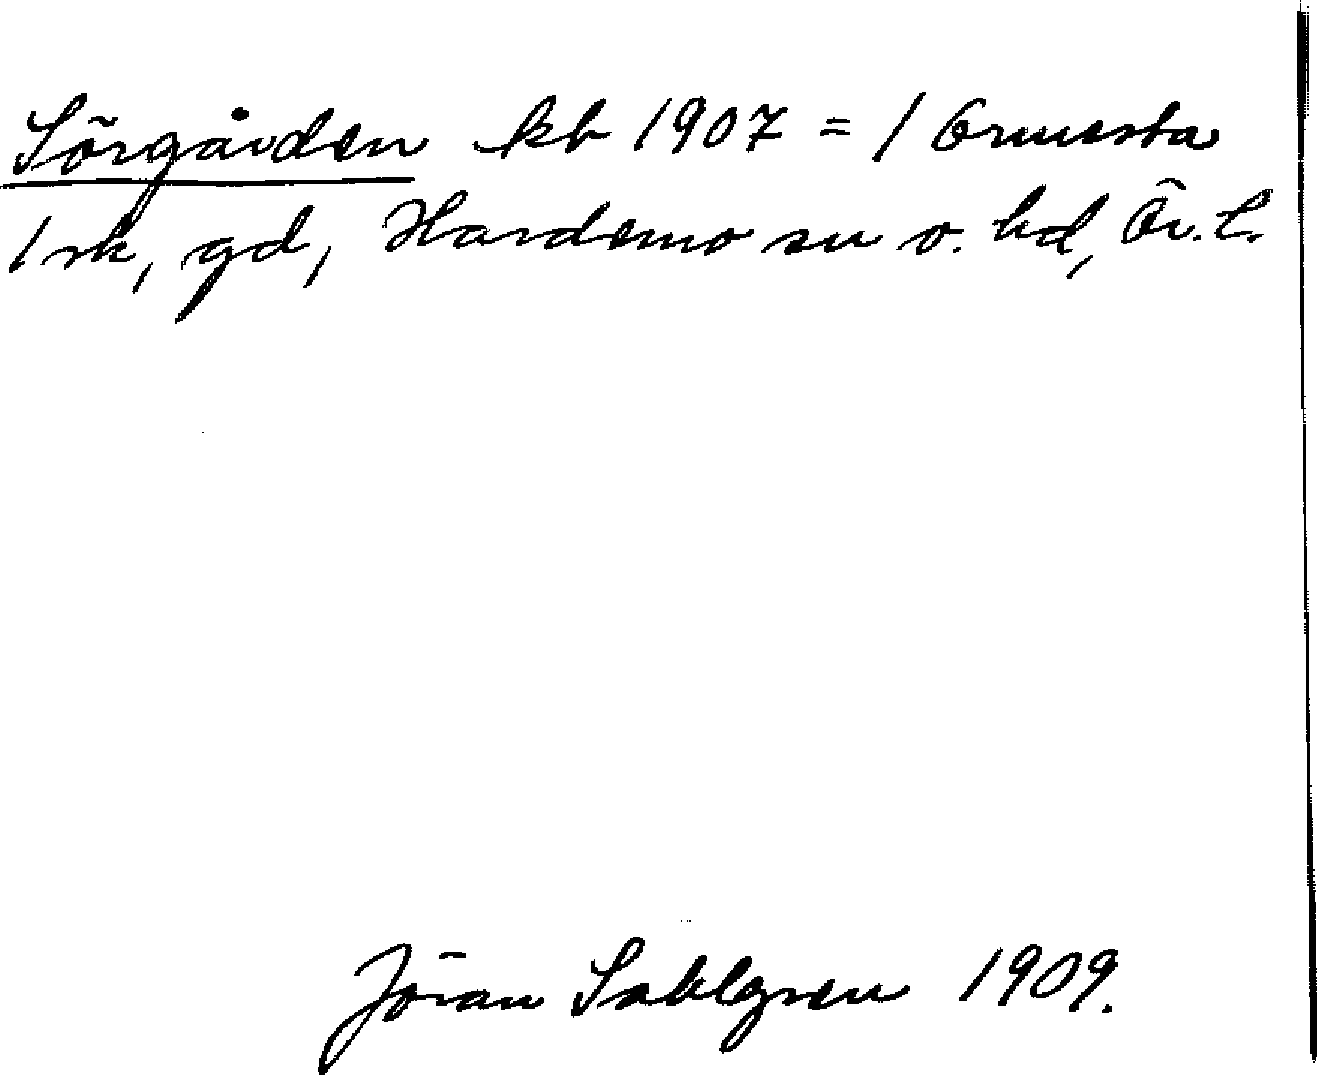 Sörgården kb 1907 = 1 Ormesta
1 rk, gd, Hardemo sn o. hd, Ör. l.
Jöran Sahlgren 1909.